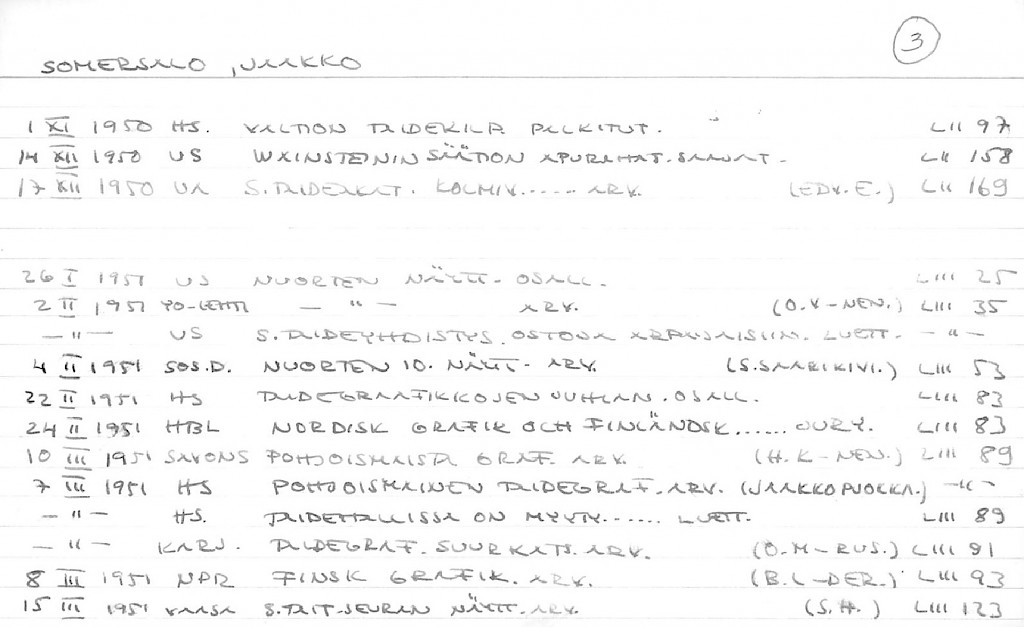 3
SOMERSALO, JAAKKO
1 XI 1950 HS. VALTION TAIDEKILP. PALKITUT. LII 97
14 XII 1950 US WAINSTEININ SÄÄTIÖN APURAHAT. SAAJAT - LII 158
17 XII 1950 UA S. TAIDEAKAT. KOLMIV..... ARV. (EDV. E.) LII 169
26 I 1951 US NUORTEN NÄYTT - OSALL. LIII 25
2 II 1951 YO-LEHTI — " — ARV. (O. V-NEN.) LIII 35
— " — US S. TAIDEYHDISTYS. OSTONA ARPAJAISIIN. LUETT. - " -
4 II 1951 SOS.D. NUORTEN 10. NÄYTT - ARV. (S. SAARIKIVI.) LIII 53
22 II 1951 HS TAIDEGRAAFIKKOJEN JUHLAN. OSALL. LIII 83
24 II 1951 HBL NORDISK GRAFIK OCH FINLÄNDSK...... JURY. LIII 83
10 III 1951 SAVONS POHJOISMAISTA GRAF. ARV. (H. K-NEN.) LIII 89
7 III 1951 HS POHJOISMAINEN TAIDEGRAF. ARV. (JAAKKO PUOKKA.) - " -
— " — HS. TAIDEHALLISSA ON MYYTY...... LUETT. LIII 89
— " — KARJ. TAIDEGRAF. SUURKATS. ARV. (O. M-RUS.) LIII 91
8 III 1951 NPR FINSK GRAFIK. ARV. (B. L-DER.) LIII 93
15 III 1951 VAASA S. TAIT-SEURAN NÄYTT - ARV. (S.H.) LIII 123